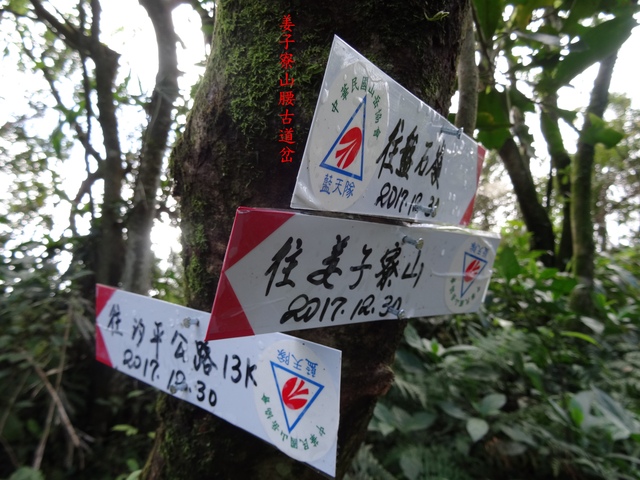 姜子寮山腰古道岔
中華民國山岳協會
藍天隊
往盤石嶺
2017.12.30
往姜子寮山
2017.12.30
往汐平公路13K
2017.12.30
藍天隊
中華民國山岳協會